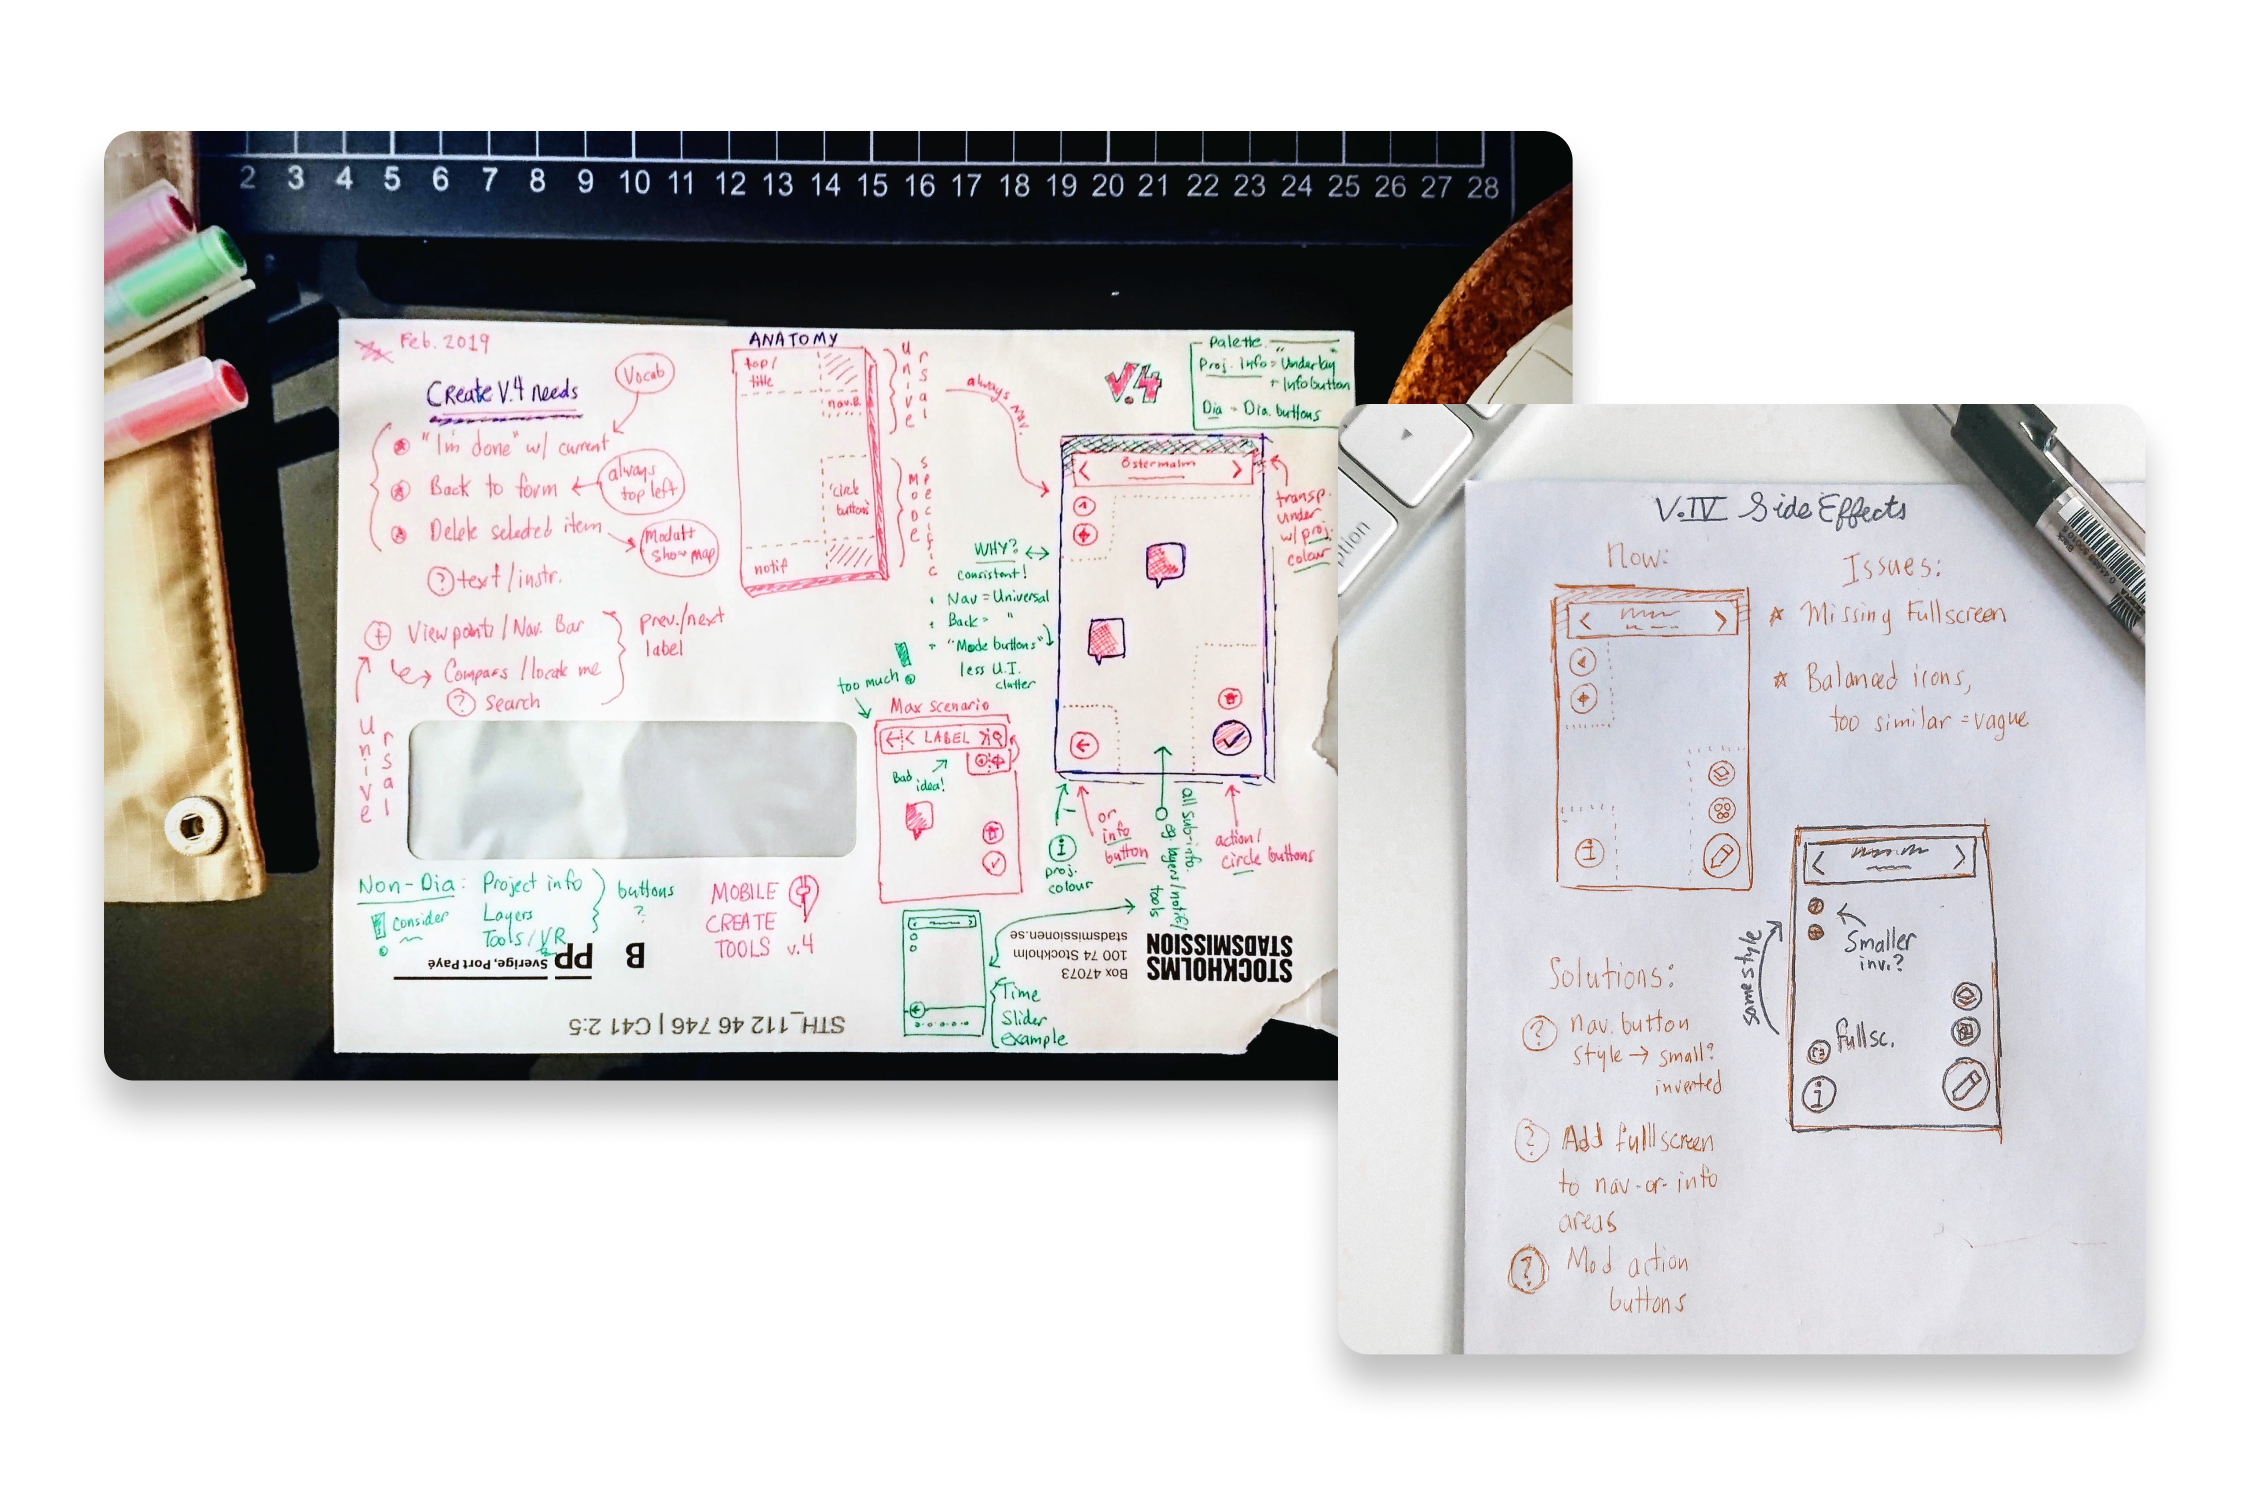 2 3 4 5 6 7 8 9 10 11 12 13 14 15 16 17 18 19 20 21 22 23 24 25 26 27 28
Feb. 2019
Create V.4 needs
Vocab
"I'm done" w/ current
Back to form
always
top left
Delete selected item
show map
? text/instr.
Viewpoints/Nav. Bar
Compass/locate me
? search
prev./next
label
Universal
ANATOMY
top/
title
nav.B
circle
buttons
notif
Universal
MODE
specific
always nav.
V.4
Palette
Proj. Info = Underlay
+ Info button
Dia = Dia. buttons
< Östermalm >
transp.
under
w/ proj.
colour
WHY?
consistent!
Nav = Universal
Back = "
"Mode buttons"
less U.I.
clutter
too much
Max scenario
LABEL
Bad
idea!
i
proj.
colour
or
info
button
all sub-info.
eg layers/notif/
tools
action/
circle buttons
Non-Dia: Project info
Layers
Tools/VR
buttons
?
! Consider
MOBILE
CREATE
TOOLS v.4
Time
Slider
example
STOCKHOLMS
STADSMISSION
Box 47073
100 74 Stockholm
stadsmissionen.se
B
PP
Sverige, Port Payé
STH_112 46 746 | C41 2:5
ption
V.IV Side Effects
Now:
i
Issues:
Missing Fullscreen
Balanced icons,
too similar = vague
Solutions:
? nav. button
style → small?
inverted
? Add fullscreen
to nav-or-info
areas
? Mod action
buttons
same style
Smaller
inv.?
fullsc.
i